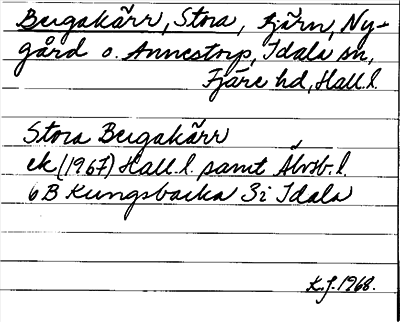 Bergakärr, Stora, tjärn, Ny-
gård o. Annestorp, Idala sn,
Fjäre hd, Hall.l.
Stora Bergakärr
ek (1967) Hall.l. samt Älvsb.l.
6B Kungsbacka 3i Idala
K.J. 1968.